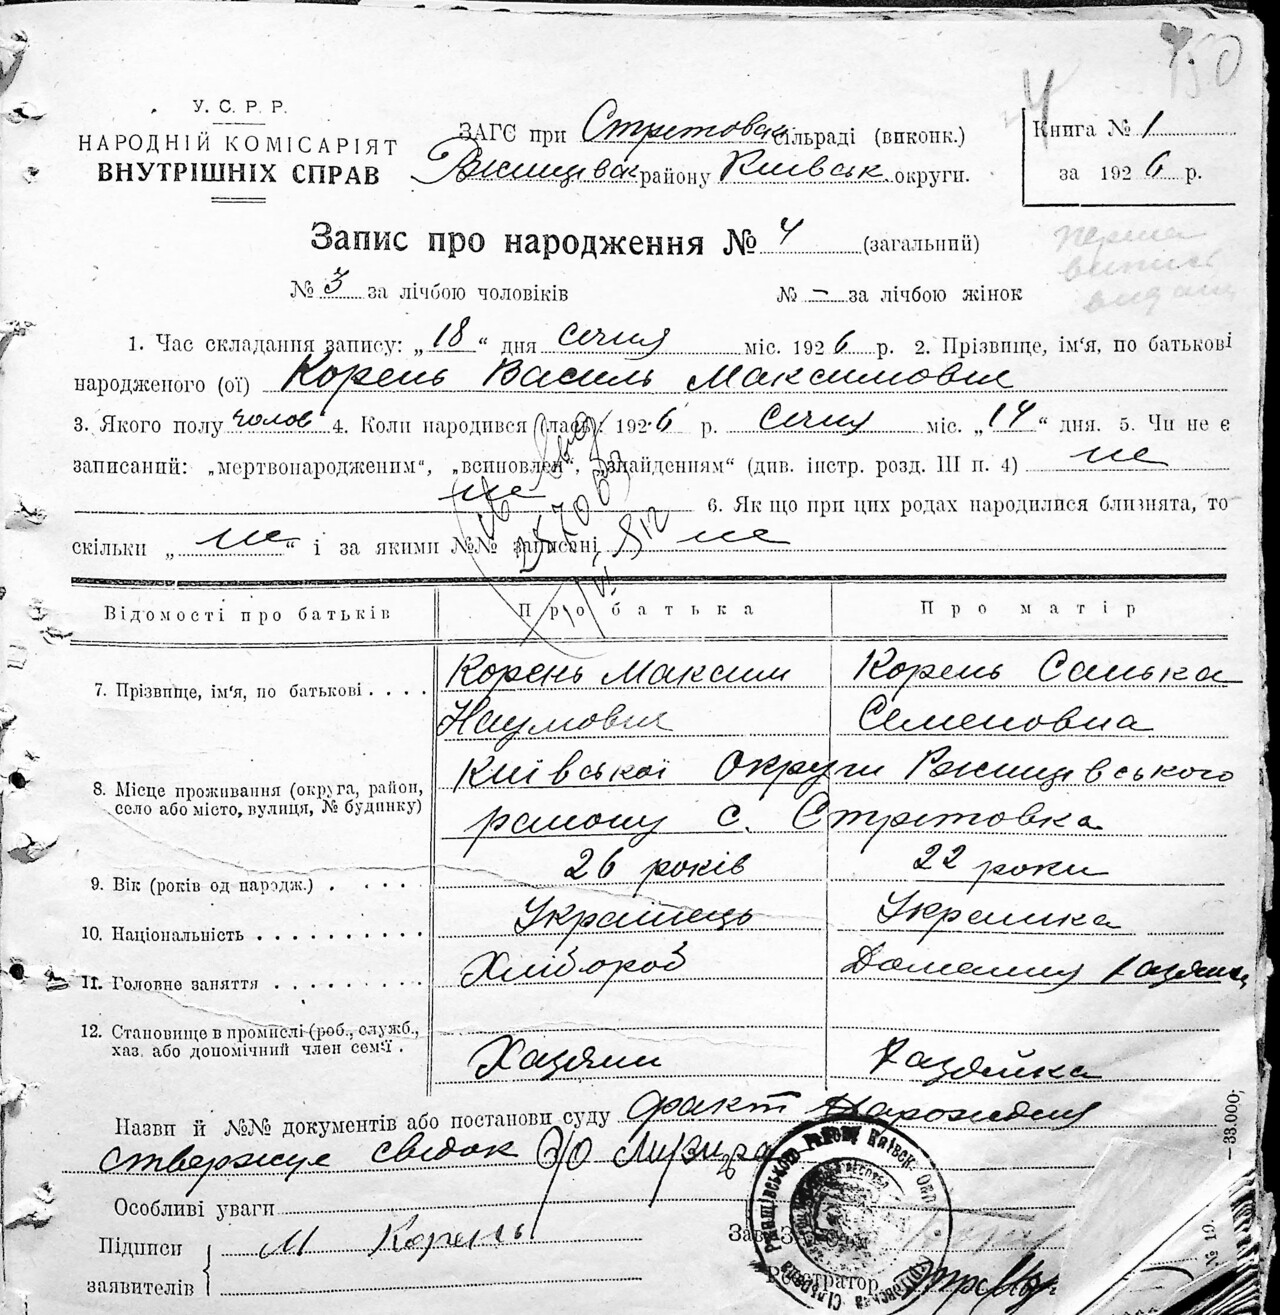 150
4
У. С. Р. Р.
НАРОДНІЙ КОМІСАРІЯТ
ВНУТРІШНІХ СПРАВ
ЗАГС при Стретовск сільраді (виконк.)
Ржищевск району Київськ округи.
Книга № 1
за 1926 р.
Запис про народження № 4 (загальний)
перша
випись
видана
№ 3 за лічбою чоловіків № – за лічбою жінок
1. Час складання запису: „18“ дня січня міс. 1926 р. 2. Прізвище, ім'я, по батькові
народженого (ої) Корень Василь Максимович
3. Якого полу чолов 4. Коли народився (лась): 1926 р. січня міс. „14“ дня. 5. Чи не є
записаний: „мертвонародженим“, „всиновлен“, „знайденням“ (див. інстр. розд. III п. 4) не
не 6. Як що при цих родах народилися близнята, то
скільки „не“ і за якими №№ записані не
Відомості про батьків Про батька Про матір
7. Прізвище, ім'я, по батькові . . . . Корень Максим Корень Санька
Наумович Семеновна
8. Місце проживання (округа, район, Київської Округи Ржищевського
село або місто, вулиця, № будинку) району с. Стретовка
9. Вік (років од народж.) . . . . . 26 років 22 роки
10. Національність . . . . . . . . . . Українець Украинка
11. Головне заняття . . . . . . . . . Хлібороб Домашня хазяйка
12. Становище в промислі (роб., служб.,
хаз. або допомічний член сем'ї . Хазяин Хазяйка
Назви й №№ документів або постанови суду факт народження
ствержує свідок
Особливі уваги
Підписи М Корень Зав. ЗАГСОМ
заявителів Реєстратор
33.000;
№ 19.